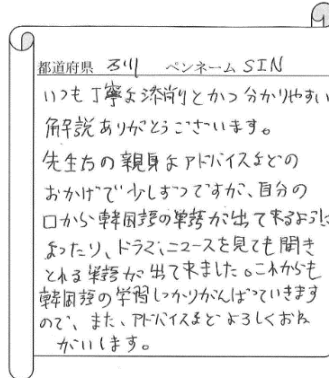 都道府県 石川 ペンネーム SIN
いつも丁寧な添削とかつ分かりやすい
解説ありがとうございます。
先生方の親身なアドバイスなどの
おかげで少しずつですが、自分の
口から韓国語の単語が出て来るように
なったり、ドラマ、ニュースを見ても聞き
とれる単語が出て来ました。これからも
韓国語の学習しっかりがんばっていきます
ので、また、アドバイスなどよろしくおね
がいします。